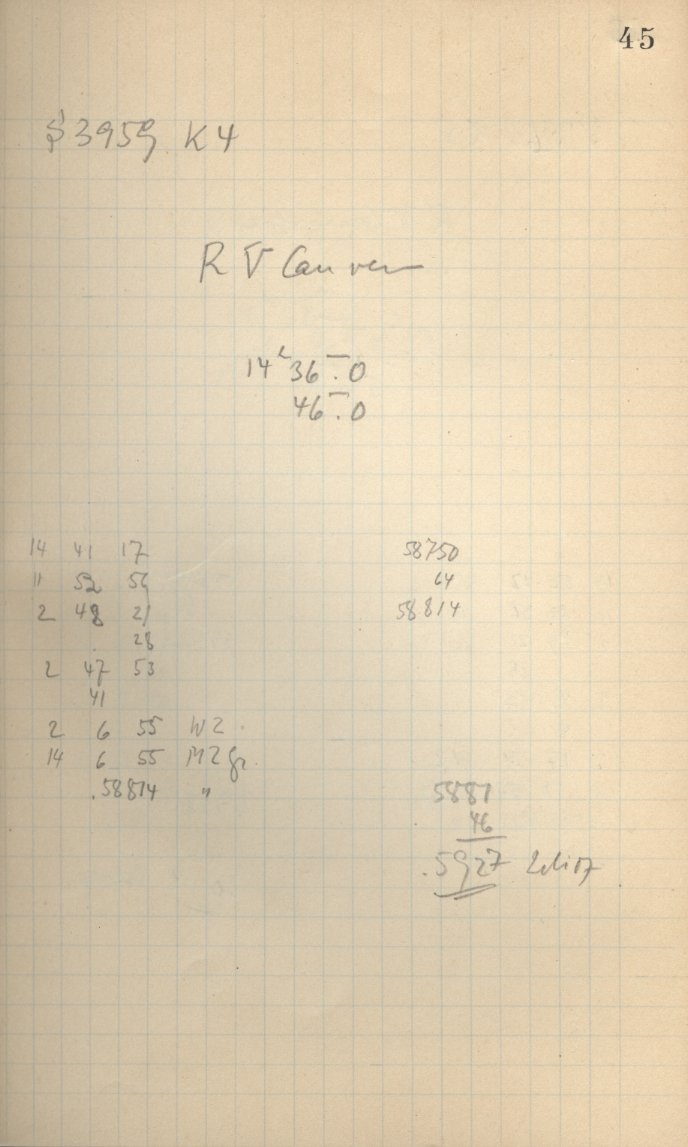 45
§3959 K4
R V Can ven
14ʰ 36ᵐ.0
46ᵐ.0
14 41 17
11 52 56
2 48 21
28
2 47 53
41
2 6 55 W Z
14 6 55 M Z Gr.
.58814 "
58750
64
58814
5881
46
.5927